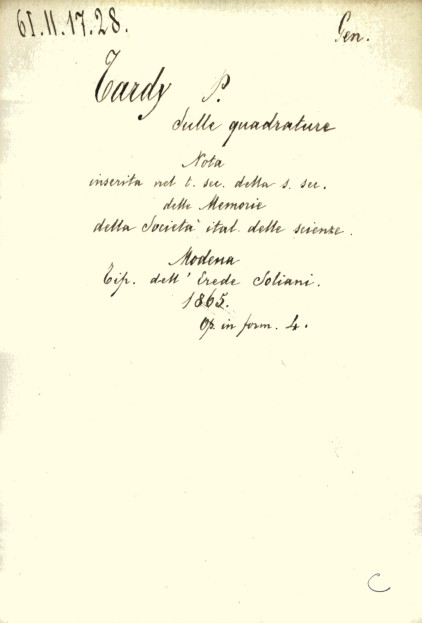 61.11.17.28.
Gen.
Tardy P.
Sulle quadrature
Nota
inserita nel t. sec. della s. sec.
delle Memorie
della Società ital. delle scienze.
Modena
Tip. dell' Erede Soliani.
1865.
Op. in form. 4.
C